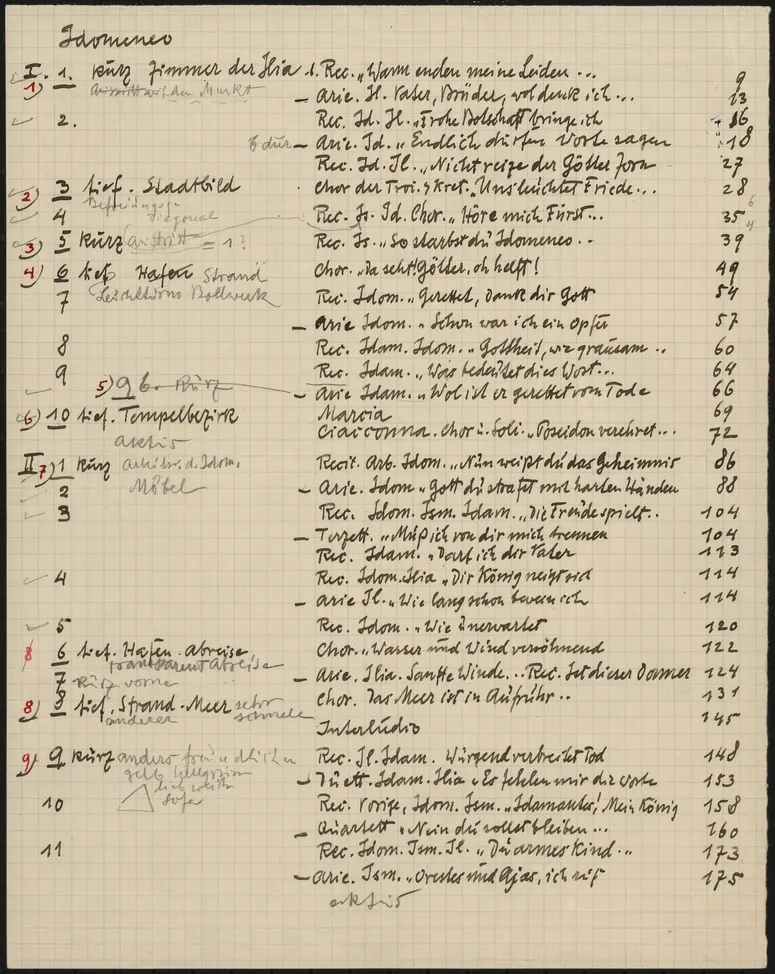 Idomeneo
I. 1. Kurz Zimmer der Ilia 1. Rec. „Wann enden meine Leiden ... 9
1) auf den Markt – Arie. Il. Vater, Brüder, wol denk ich ... 13
2. Rec. Id. Il. „Frohe Botschaft bringe ich 16
B dur – Arie. Id. „Endlich dürfen Worte sagen 18
Rec. Id. Il. „Nicht reize der Götter Zorn 27
2) 3 tief. Stadtbild Chor der Troi. & Kret. „Uns leuchtet Friede ... 28
4 Rec. Is. Id. Chor. „Höre mich Fürst ... 35 6 4
3) 5 Kurz = 1? Rec. Is. „So starbst du Idomeneo .. 39
4) 6 tief Hafen Strand Chor. „Da seht! Götter, oh helft! 49
7 Leuchtturm Bollwerk Rec. Idom. „Gerettet, Dank dir Gott 54
– Arie Idom. „Schon war ich ein Opfer 57
8 Rec. Idam. Idom. „Gottheit, wie grausam .. 60
9 Rec. Idam. „Was bedeutet dies Wort ... 64
5) 9 b. Kurz – Arie Idam. „Wol ist er gerettet vom Tode 66
6) 10 tief. Tempelbezirk Marcia 69
aktis Ciacconna. Chor u. Soli. „Poseidon verehret ... 72
II 7) 1 Kurz Arbtsr. d. Idom. Recit. Arb. Idom. „Nun weißt du das Geheimnis 86
2 Möbel – Arie. Idom „Gott du strafst mit harten Händen 88
3 Rec. Idom. Ism. Idam. „Die Freude spielt .. 104
– Terzett. „Muß ich von dir mich trennen 104
Rec. Idam. „Darf ich dir Vater 113
4 Rec. Idom. Ilia „Dir König neigt sich 114
– Arie Il. „Wie lang schon bewein ich 114
5 Rec. Idom. „Wie unerwartet 120
8 6 tief. Hafen. Abreise Chor. „Wasser und Wind versöhnend 122
transparent Abreise
7 Kurz vorne – Arie. Ilia. Sanfte Winde ... Rec. Ist dieser Donner 124
8) tief. Strand. Meer sehr schnell Chor. Das Meer ist in Aufruhr .. 131
anderer Interludio 145
9) 9 Kurz anders freundlich Rec. Il. Idam. Würgend verbreitet Tod 148
gelb
– Duett. Idam. Ilia „Es fehlen mir die Worte 153
10 Sofa Rec. Vorige, Idom. Ism. „Idamantes! Mein König 158
– Quartett „Nein du sollst bleiben ... 160
11 Rec. Idom. Ism. Il. „Du armes Kind .. 173
– Arie. Ism. „Orestes und Ajas, ich ruf 175
aktis